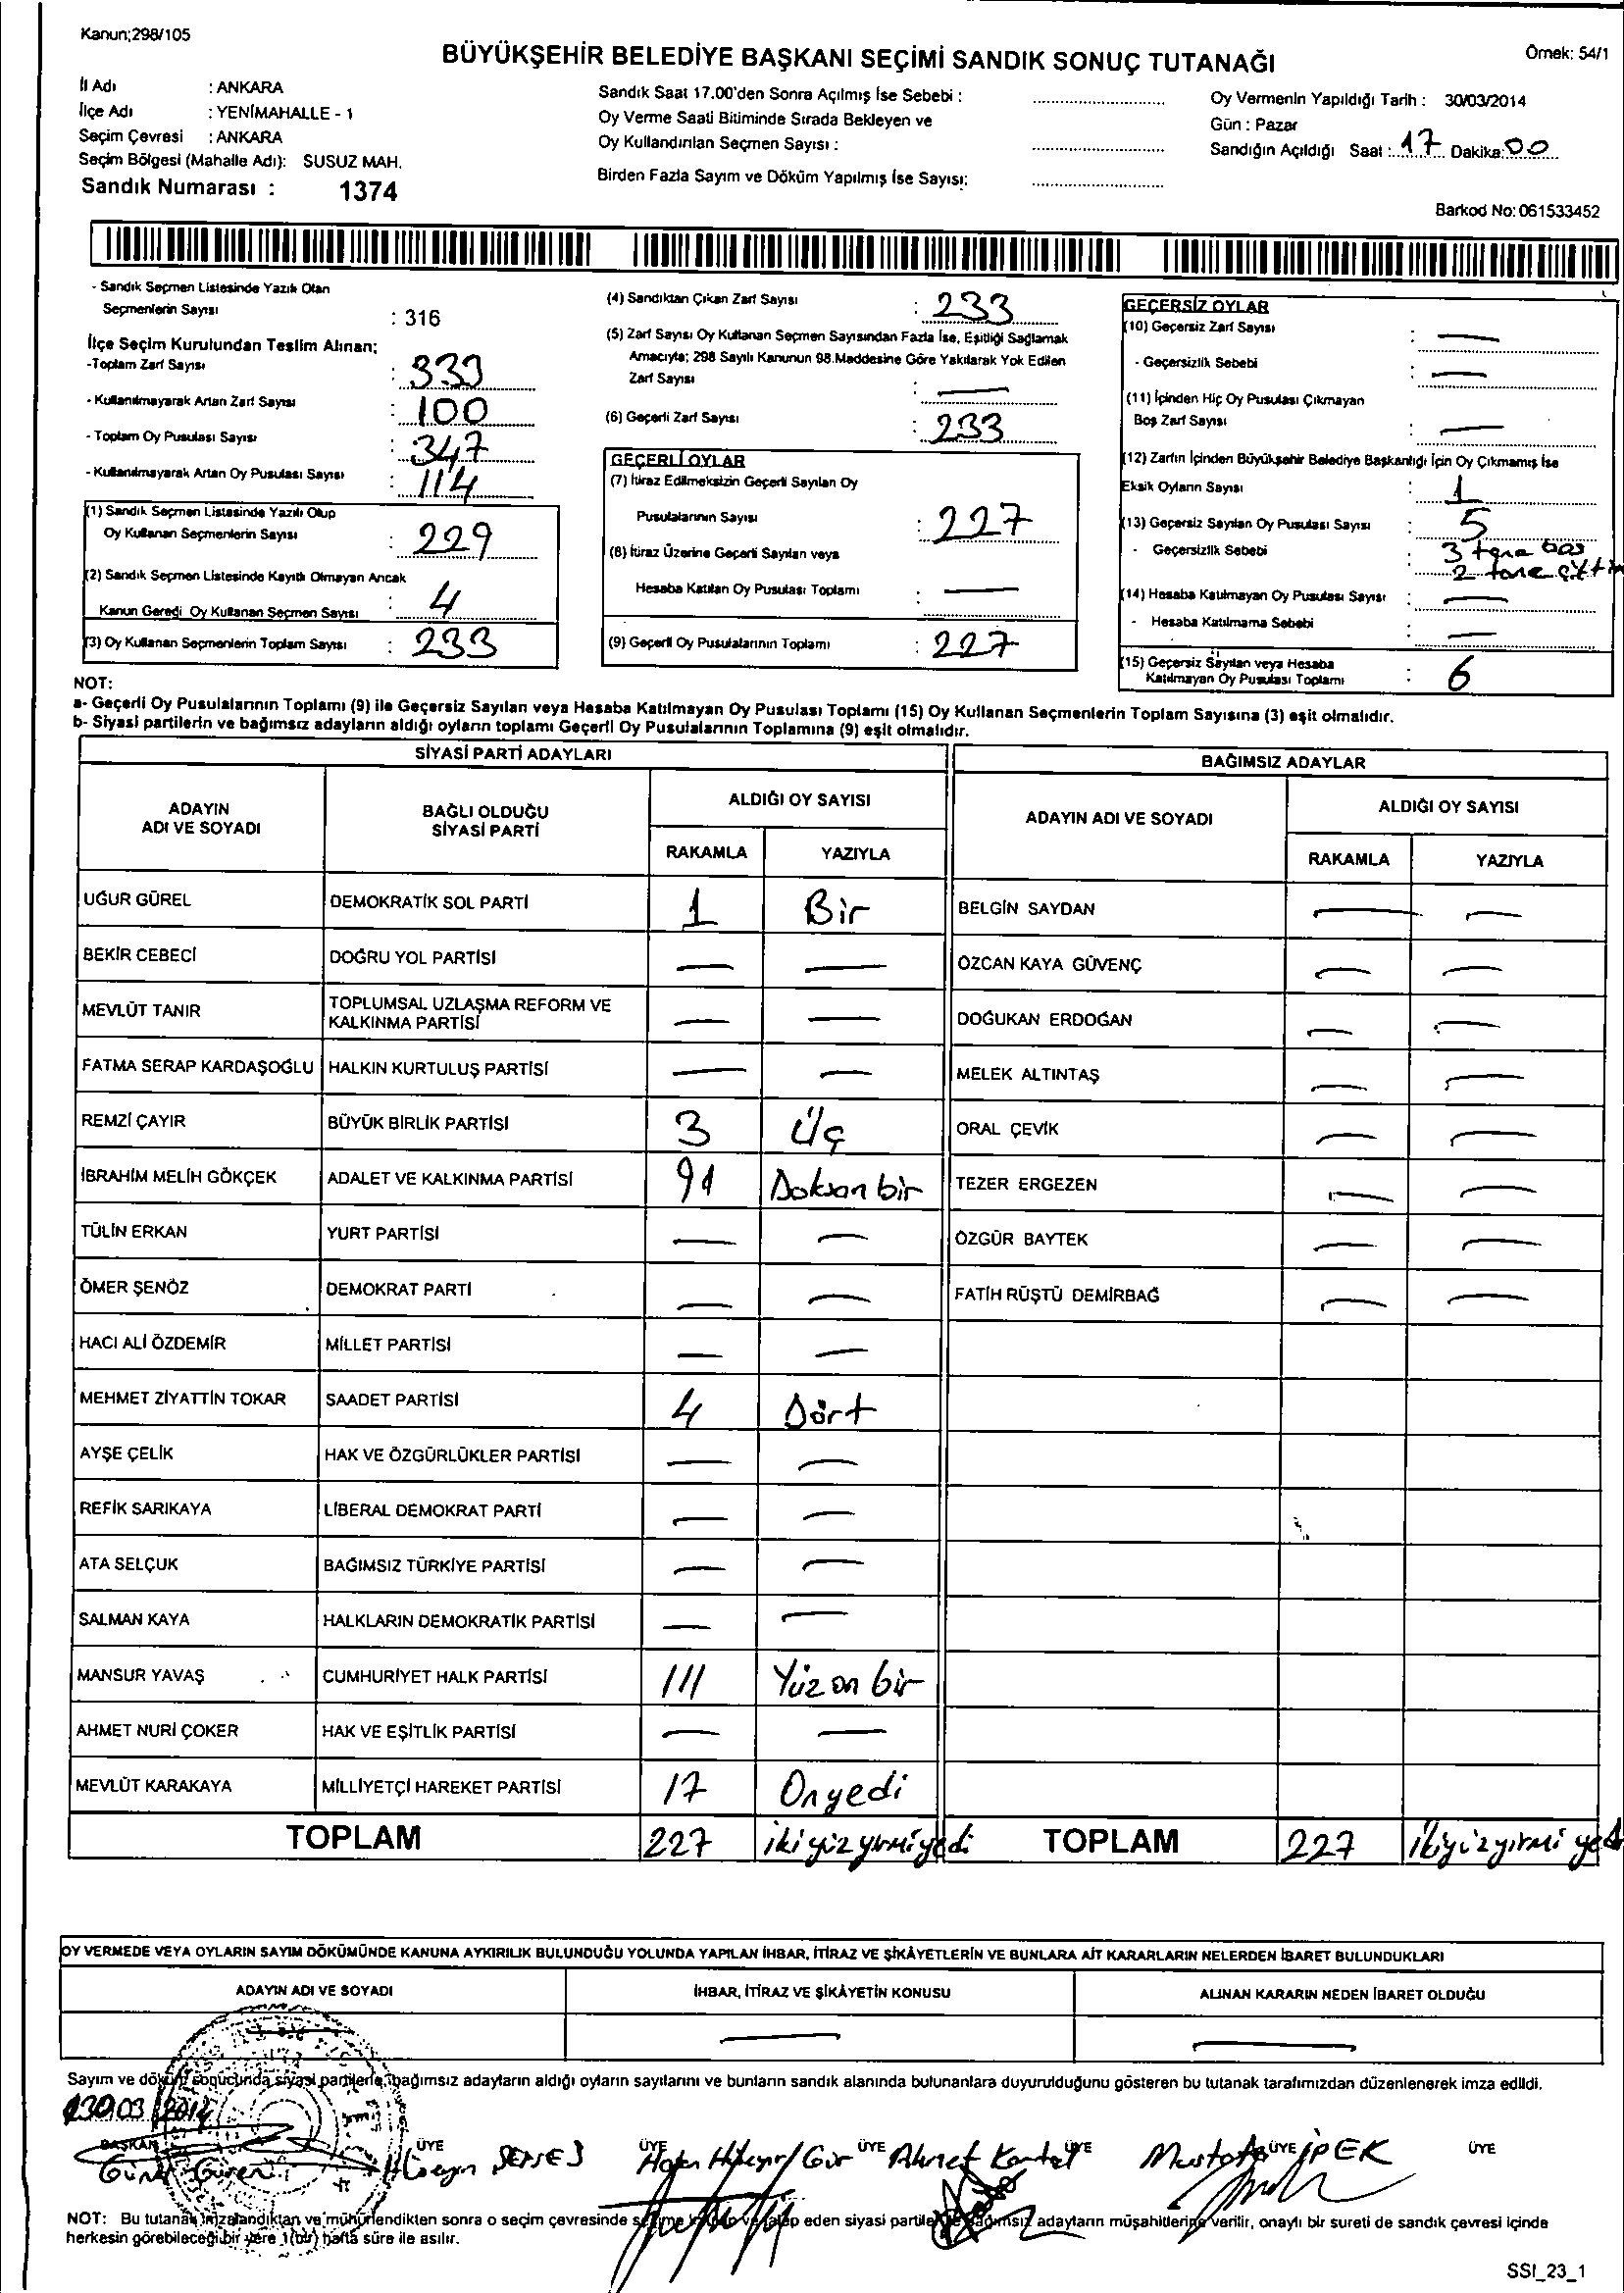 Kanun;298/105
BÜYÜKŞEHİR BELEDİYE BAŞKANI SEÇİMİ SANDIK SONUÇ TUTANAĞI
Örnek: 54/1
İl Adı : ANKARA
İlçe Adı : YENİMAHALLE - 1
Seçim Çevresi : ANKARA
Seçim Bölgesi (Mahalle Adı): SUSUZ MAH.
Sandık Numarası : 1374
Sandık Saat 17.00'den Sonra Açılmış İse Sebebi :
Oy Verme Saati Bitiminde Sırada Bekleyen ve
Oy Kullandırılan Seçmen Sayısı :
Birden Fazla Sayım ve Döküm Yapılmış İse Sayısı:
Oy Vermenin Yapıldığı Tarih : 30/03/2014
Gün : Pazar
Sandığın Açıldığı Saat : 17 Dakika: 00
Barkod No: 061533452
- Sandık Seçmen Listesinde Yazılı Olan
Seçmenlerin Sayısı : 316
İlçe Seçim Kurulundan Teslim Alınan;
-Toplam Zarf Sayısı : 333
- Kullanılmayarak Artan Zarf Sayısı : 100
- Toplam Oy Pusulası Sayısı : 347
- Kullanılmayarak Artan Oy Pusulası Sayısı : 114
(1) Sandık Seçmen Listesinde Yazılı Olup
Oy Kullanan Seçmenlerin Sayısı : 229
(2) Sandık Seçmen Listesinde Kayıtlı Olmayan Ancak
Kanun Gereği Oy Kullanan Seçmen Sayısı : 4
(3) Oy Kullanan Seçmenlerin Toplam Sayısı : 233
(4) Sandıktan Çıkan Zarf Sayısı : 233
(5) Zarf Sayısı Oy Kullanan Seçmen Sayısından Fazla İse, Eşitliği Sağlamak
Amacıyla; 298 Sayılı Kanunun 98.Maddesine Göre Yakılarak Yok Edilen
Zarf Sayısı : —
(6) Geçerli Zarf Sayısı : 233
GEÇERLİ OYLAR
(7) İtiraz Edilmeksizin Geçerli Sayılan Oy
Pusulalarının Sayısı : 227
(8) İtiraz Üzerine Geçerli Sayılan veya
Hesaba Katılan Oy Pusulası Toplamı : —
(9) Geçerli Oy Pusulalarının Toplamı : 227
GEÇERSİZ OYLAR
(10) Geçersiz Zarf Sayısı : —
- Geçersizlik Sebebi : —
(11) İçinden Hiç Oy Pusulası Çıkmayan
Boş Zarf Sayısı : —
(12) Zarfın İçinden Büyükşehir Belediye Başkanlığı İçin Oy Çıkmamış İse
Eksik Oyların Sayısı : 1
(13) Geçersiz Sayılan Oy Pusulası Sayısı : 5
- Geçersizlik Sebebi : 3 tane boş
2 tane
(14) Hesaba Katılmayan Oy Pusulası Sayısı : —
- Hesaba Katılmama Sebebi : —
(15) Geçersiz Sayılan veya Hesaba
Katılmayan Oy Pusulası Toplamı : 6
NOT:
a- Geçerli Oy Pusulalarının Toplamı (9) ile Geçersiz Sayılan veya Hesaba Katılmayan Oy Pusulası Toplamı (15) Oy Kullanan Seçmenlerin Toplam Sayısına (3) eşit olmalıdır.
b- Siyasi partilerin ve bağımsız adayların aldığı oyların toplamı Geçerli Oy Pusulalarının Toplamına (9) eşit olmalıdır.
SİYASİ PARTİ ADAYLARI
ADAYIN ADI VE SOYADI
BAĞLI OLDUĞU SİYASİ PARTİ
ALDIĞI OY SAYISI
RAKAMLA YAZIYLA
UĞUR GÜREL DEMOKRATİK SOL PARTİ 1 Bir
BEKİR CEBECİ DOĞRU YOL PARTİSİ — —
MEVLÜT TANIR TOPLUMSAL UZLAŞMA REFORM VE KALKINMA PARTİSİ — —
FATMA SERAP KARDAŞOĞLU HALKIN KURTULUŞ PARTİSİ — —
REMZİ ÇAYIR BÜYÜK BİRLİK PARTİSİ 3 Üç
İBRAHİM MELİH GÖKÇEK ADALET VE KALKINMA PARTİSİ 91 Doksan bir
TÜLİN ERKAN YURT PARTİSİ — —
ÖMER ŞENÖZ DEMOKRAT PARTİ — —
HACI ALİ ÖZDEMİR MİLLET PARTİSİ — —
MEHMET ZİYATTİN TOKAR SAADET PARTİSİ 4 Dört
AYŞE ÇELİK HAK VE ÖZGÜRLÜKLER PARTİSİ — —
REFİK SARIKAYA LİBERAL DEMOKRAT PARTİ — —
ATA SELÇUK BAĞIMSIZ TÜRKİYE PARTİSİ — —
SALMAN KAYA HALKLARIN DEMOKRATİK PARTİSİ — —
MANSUR YAVAŞ CUMHURİYET HALK PARTİSİ 111 Yüz on bir
AHMET NURİ ÇOKER HAK VE EŞİTLİK PARTİSİ — —
MEVLÜT KARAKAYA MİLLİYETÇİ HAREKET PARTİSİ 17 Onyedi
TOPLAM 227 ikiyüzyirmiyedi
BAĞIMSIZ ADAYLAR
ADAYIN ADI VE SOYADI
ALDIĞI OY SAYISI
RAKAMLA YAZIYLA
BELGİN SAYDAN — —
ÖZCAN KAYA GÜVENÇ — —
DOĞUKAN ERDOĞAN — —
MELEK ALTINTAŞ — —
ORAL ÇEVİK — —
TEZER ERGEZEN — —
ÖZGÜR BAYTEK — —
FATİH RÜŞTÜ DEMİRBAĞ — —
TOPLAM 227 ikiyüzyirmi yedi
OY VERMEDE VEYA OYLARIN SAYIM DÖKÜMÜNDE KANUNA AYKIRILIK BULUNDUĞU YOLUNDA YAPILAN İHBAR, İTİRAZ VE ŞİKÂYETLERİN VE BUNLARA AİT KARARLARIN NELERDEN İBARET BULUNDUKLARI
ADAYIN ADI VE SOYADI İHBAR, İTİRAZ VE ŞİKÂYETİN KONUSU ALINAN KARARIN NEDEN İBARET OLDUĞU
— — —
Sayım ve döküm sonucunda siyasi partilerle, bağımsız adayların aldığı oyların sayılarını ve bunların sandık alanında bulunanlara duyurulduğunu gösteren bu tutanak tarafımızdan düzenlenerek imza edildi.
30.03/2014
BAŞKAN ÜYE ÜYE ÜYE ÜYE ÜYE ÜYE
Hüseyin Ahmet Mustafa İPEK
NOT: Bu tutanak imzalandıktan ve mühürlendikten sonra o seçim çevresinde seçime katılıp ve talep eden siyasi partiler ile bağımsız adayların müşahitlerine verilir, onaylı bir sureti de sandık çevresi içinde
herkesin görebileceği bir yere 1(bir) hafta süre ile asılır.
SSI_23_1